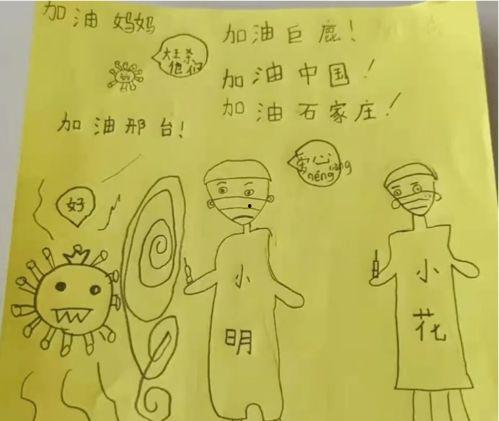 加油妈妈
大王杀
他们
加油巨鹿！
加油中国！
加油石家庄！
加油邢台！
néng
好
小明
小花